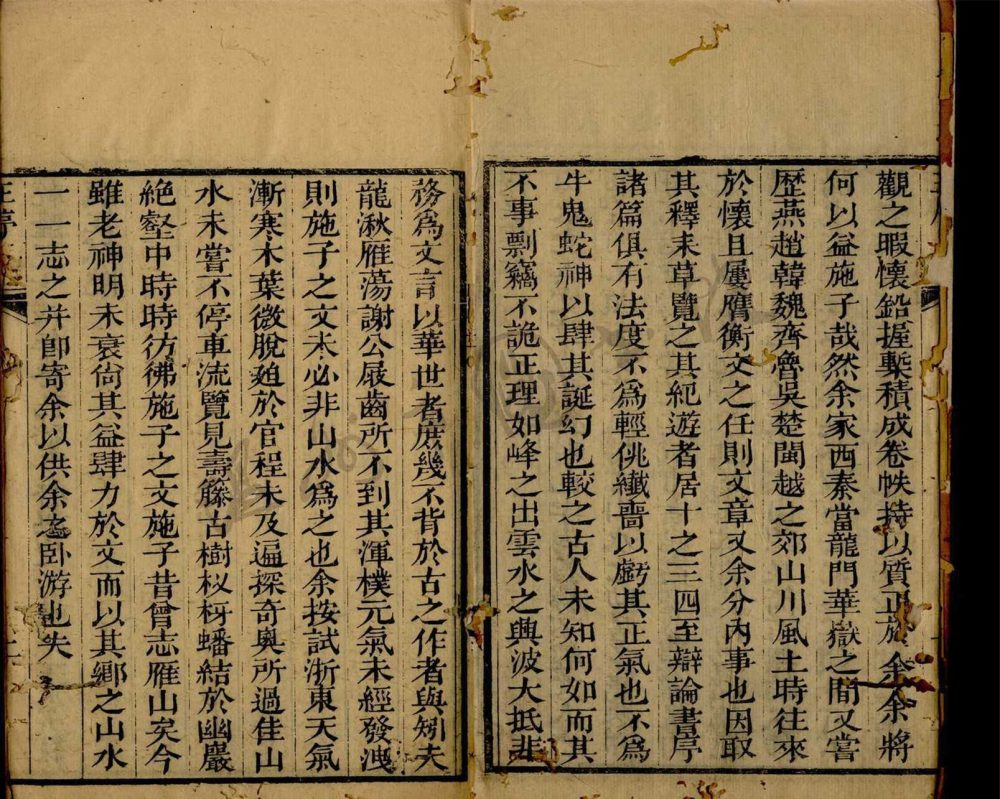 觀之暇懷鉛握槧積成卷帙持以質正於余余將
何以益施子哉然余家西秦當龍門華嶽之間又嘗
歷燕趙韓魏齊魯吳楚閩越之郊山川風土時往來
於懷且屢膺衡文之任則文章又余分內事也因取
其釋耒草覽之其紀遊者居十之三四至辯論書序
諸篇俱有法度不爲輕佻纖嗇以虧其正氣也不爲
牛鬼蛇神以肆其誕幻也較之古人未知何如而其
不事剽竊不詭正理如峰之出雲水之興波大抵非
務爲文言以華世者庶幾不背於古之作者與矧夫
龍湫雁蕩謝公屐齒所不到其渾樸元氣未經發洩
則施子之文未必非山水爲之也余按試浙東天氣
漸寒木葉微脫廹於官程未及遍探奇奧所過佳山
水未嘗不停車流覽見壽籐古樹杈枒蟠結於幽巖
絶壑中時時彷彿施子之文施子昔曾志雁山矣今
雖老神明未衰尙其益肆力於文而以其鄉之山水
一一志之并卽寄余以供余之卧游也夫